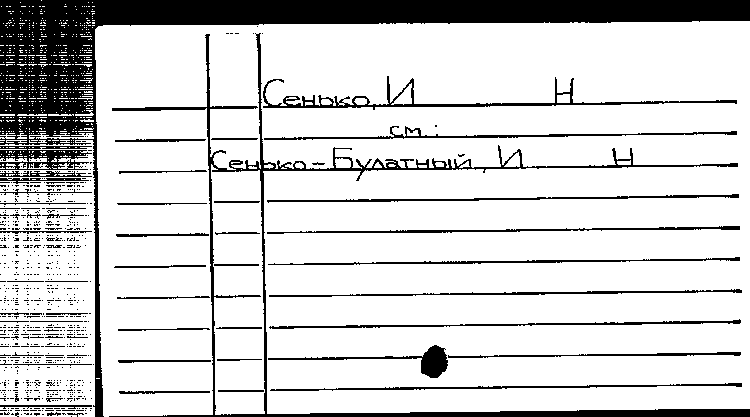 Сенько, И Н
см.:
Сенько-Булатный, И Н